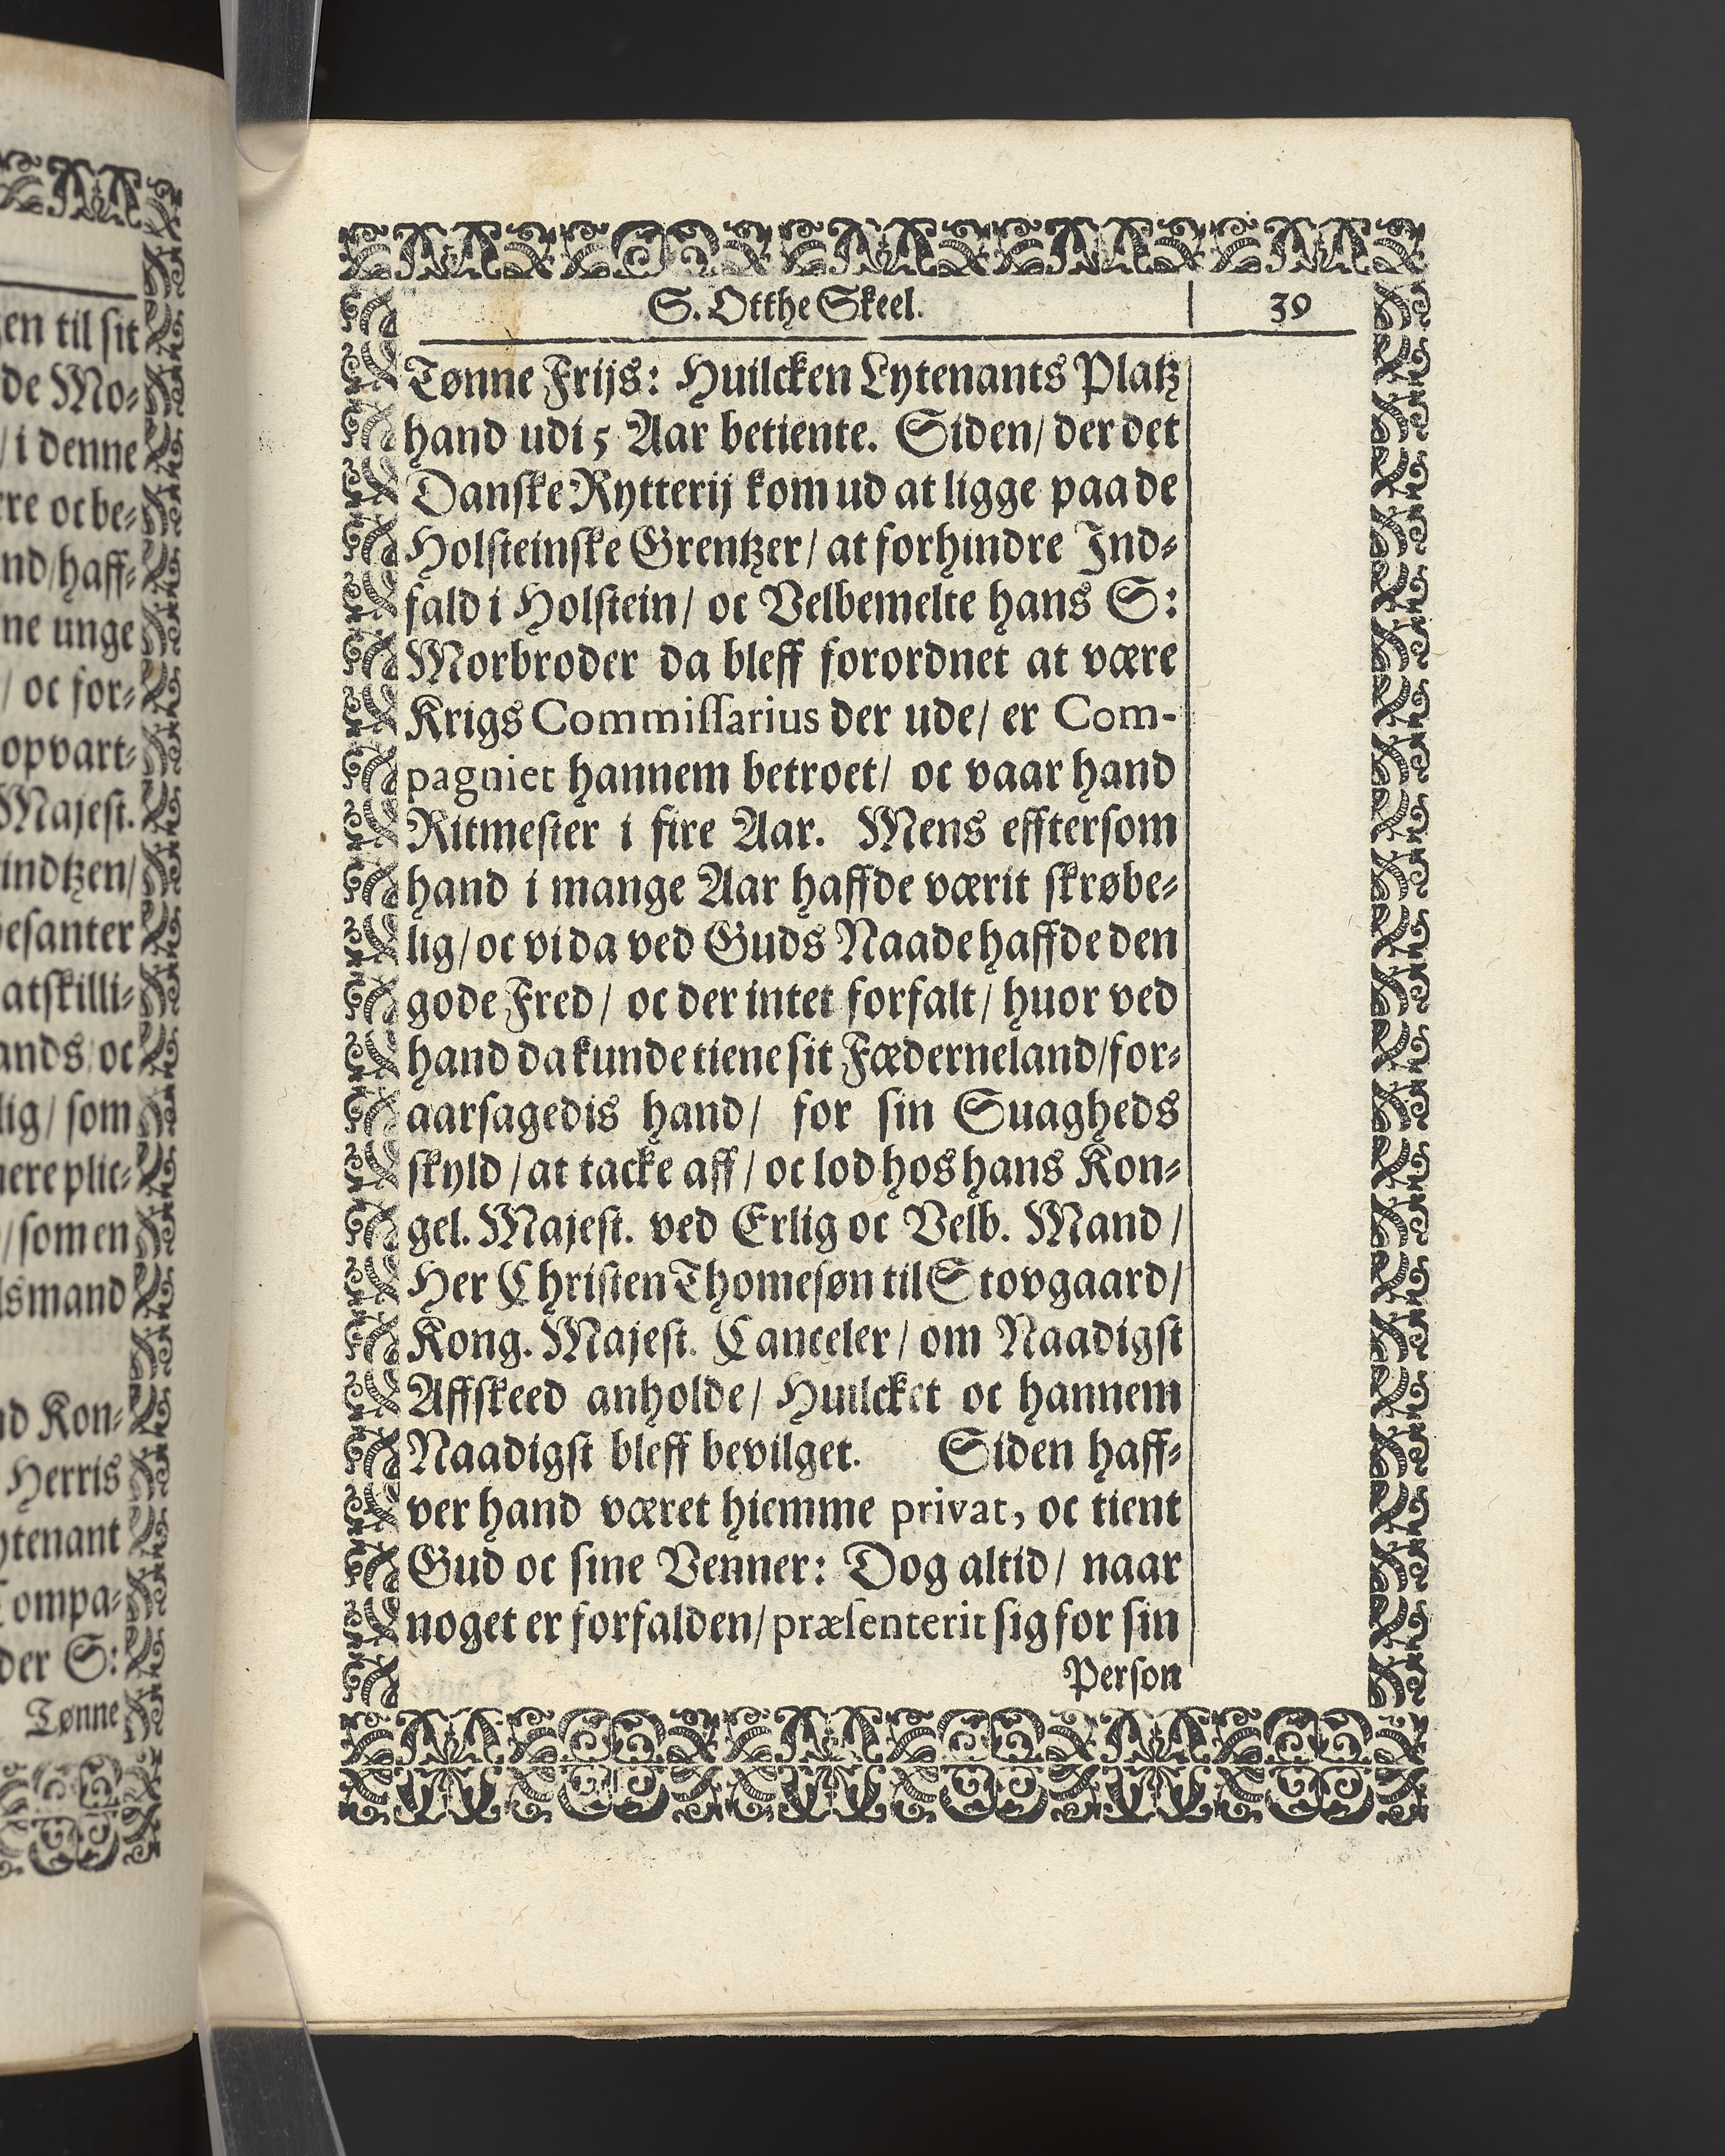 en til sit
de Mo-
/ i denne
rre oc be-
nd/haff-
ne unge
/ oc for-
opvart-
Majest.
indtzen/
esanter
atskilli-
ands/oc
lig/ som
nere plic-
/som en
lsmand
nd Kon-
Herris
ytenant
Compa-
der S:
Tønne
S. Otthe Skeel.
39
Tønne Frijs: Huilcken Lytenants Platz
hand udi 5 Aar betiente. Siden/ der det
Danske Rytterij kom ud at ligge paa de
Holsteinske Grentzer/ at forhindre Ind-
fald i Holstein/ oc Velbemelte hans S:
Morbroder da bleff forordnet at være
Krigs Commissarius der ude/ er Com-
pagniet hannem betroet/ oc vaar hand
Ritmester i fire Aar. Mens efftersom
hand i mange Aar haffde værit skrøbe-
lig/ oc vi da ved Guds Naade haffde den
gode Fred/ oc der intet forfalt/ huor ved
hand da kunde tiene sit Fæderneland/for-
aarsagedis hand/ for sin Suagheds
skyld/ at tacke aff/ oc lod hos hans Kon-
gel. Majest. ved Erlig oc Velb. Mand/
Her Christen Thomesøn til Stovgaard/
Kong. Majest. Canceler/ om Naadigst
Affskeed anholde/ Huilcket oc hannem
Naadigst bleff bevilget. Siden haff-
ver hand været hiemme privat, oc tient
Gud oc sine Venner: Dog altid/ naar
noget er forfalden/ præsenterit sig for sin
Person